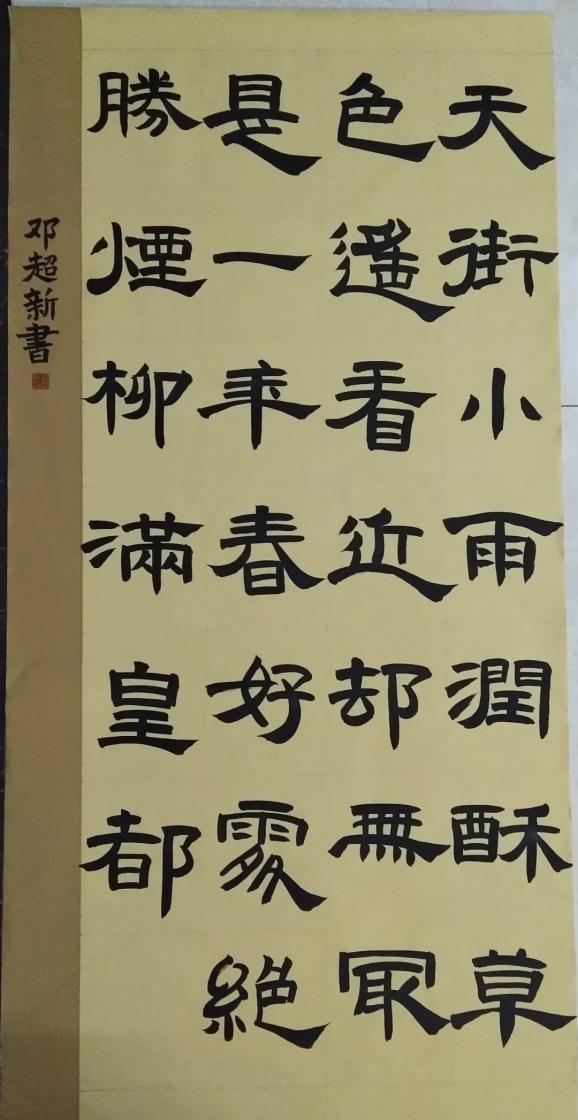 天街小雨潤酥草
色遥看近却無冣
是一年春好處絶
勝煙柳滿皇都
邓超新書